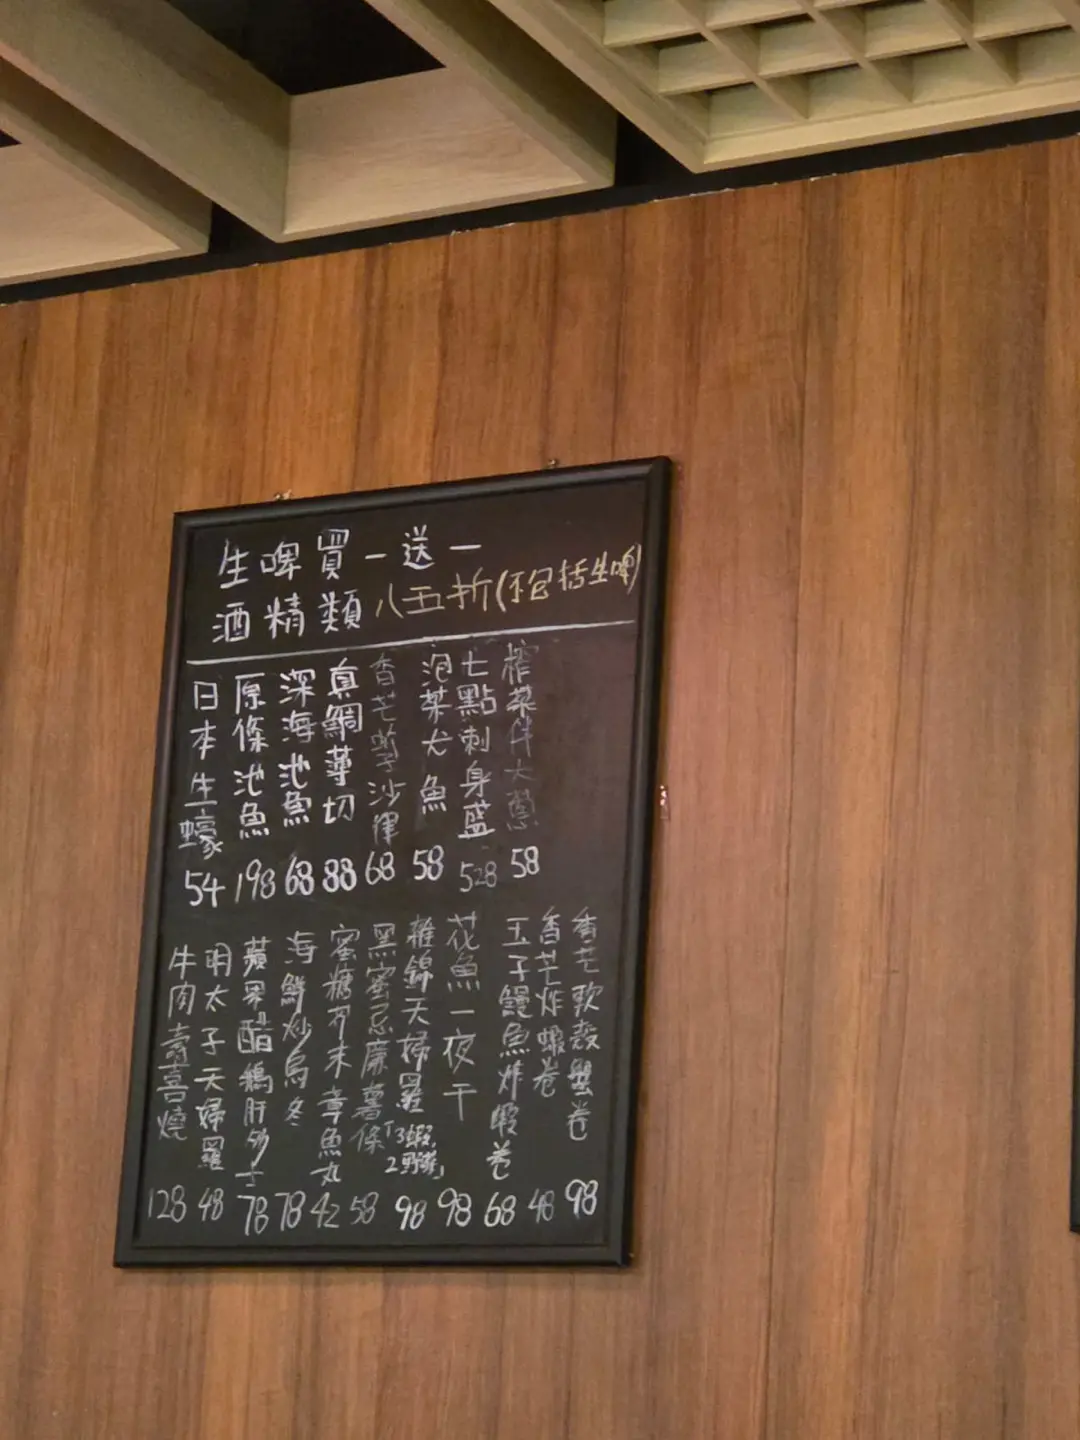 生啤買一送一
酒精類八五折(不包括生啤)
榨菜伴大蔥 58
七點刺身盛 528
泡菜犬魚 58
香芒蟹子沙律 68
真鯛薄切 88
深海池魚 68
原條池魚 198
日本生蠔 54
香芒軟殼蟹卷 98
香芒炸蝦卷 48
玉子鰻魚炸蝦卷 68
花魚一夜干 98
雜錦天婦羅「3蝦,2野菜」 98
黑蜜忌廉薯條 58
蜜糖芥末章魚丸 42
海鮮炒烏冬 78
蘋果醋鵝肝多士 78
明太子天婦羅 48
牛肉壽喜燒 128